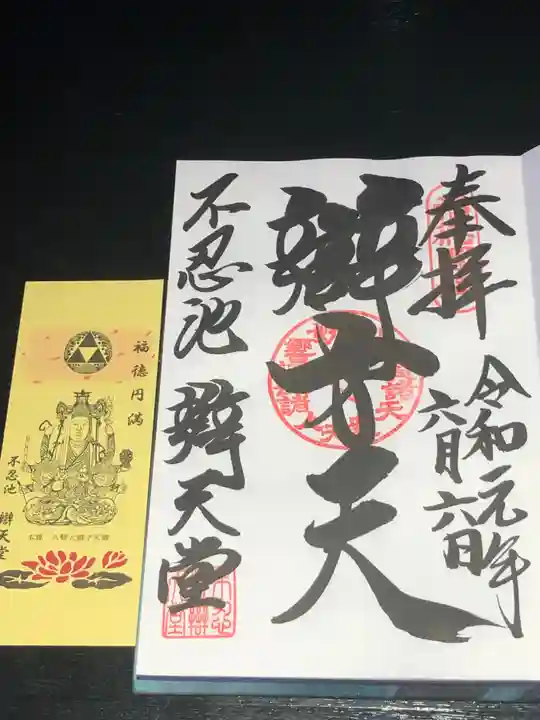 奉拝
令和元年
六月六日
辯才天
不忍池 辯天堂
福徳円満
不忍池
辯天堂